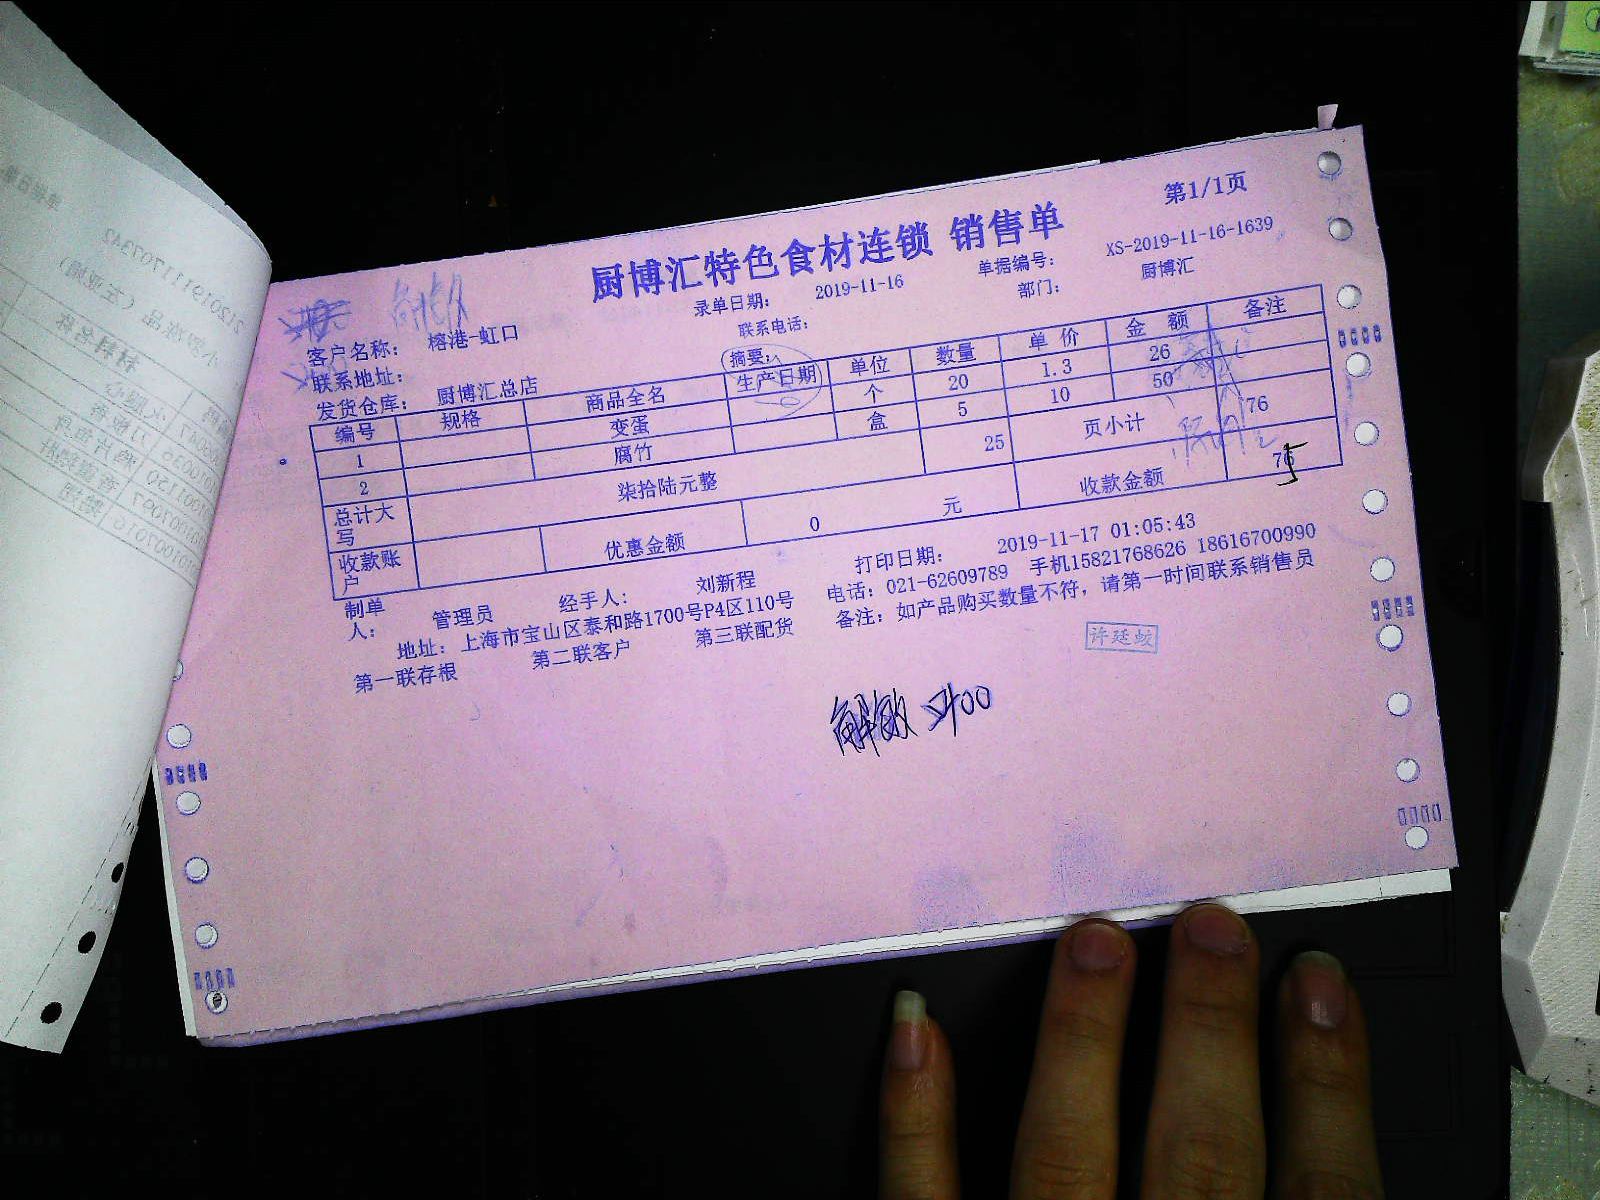 第1/1页
厨博汇特色食材连锁 销售单
录单日期: 2019-11-16 单据编号: XS-2019-11-16-1639
客户名称: 榕港-虹口 联系电话: 部门: 厨博汇
联系地址: 摘要:
发货仓库: 厨博汇总店
编号 规格 商品全名 生产日期 单位 数量 单 价 金 额 备注
1 变蛋 个 20 1.3 26
2 腐竹 盒 5 10 50
总计大写 柒拾陆元整 25 页小计 76
收款账户 优惠金额 0 元 收款金额 76
制单人: 管理员 经手人: 刘新程 打印日期: 2019-11-17 01:05:43
地址: 上海市宝山区泰和路1700号P4区110号 电话: 021-62609789 手机15821768626 18616700990
第一联存根 第二联客户 第三联配货 备注: 如产品购买数量不符,请第一时间联系销售员